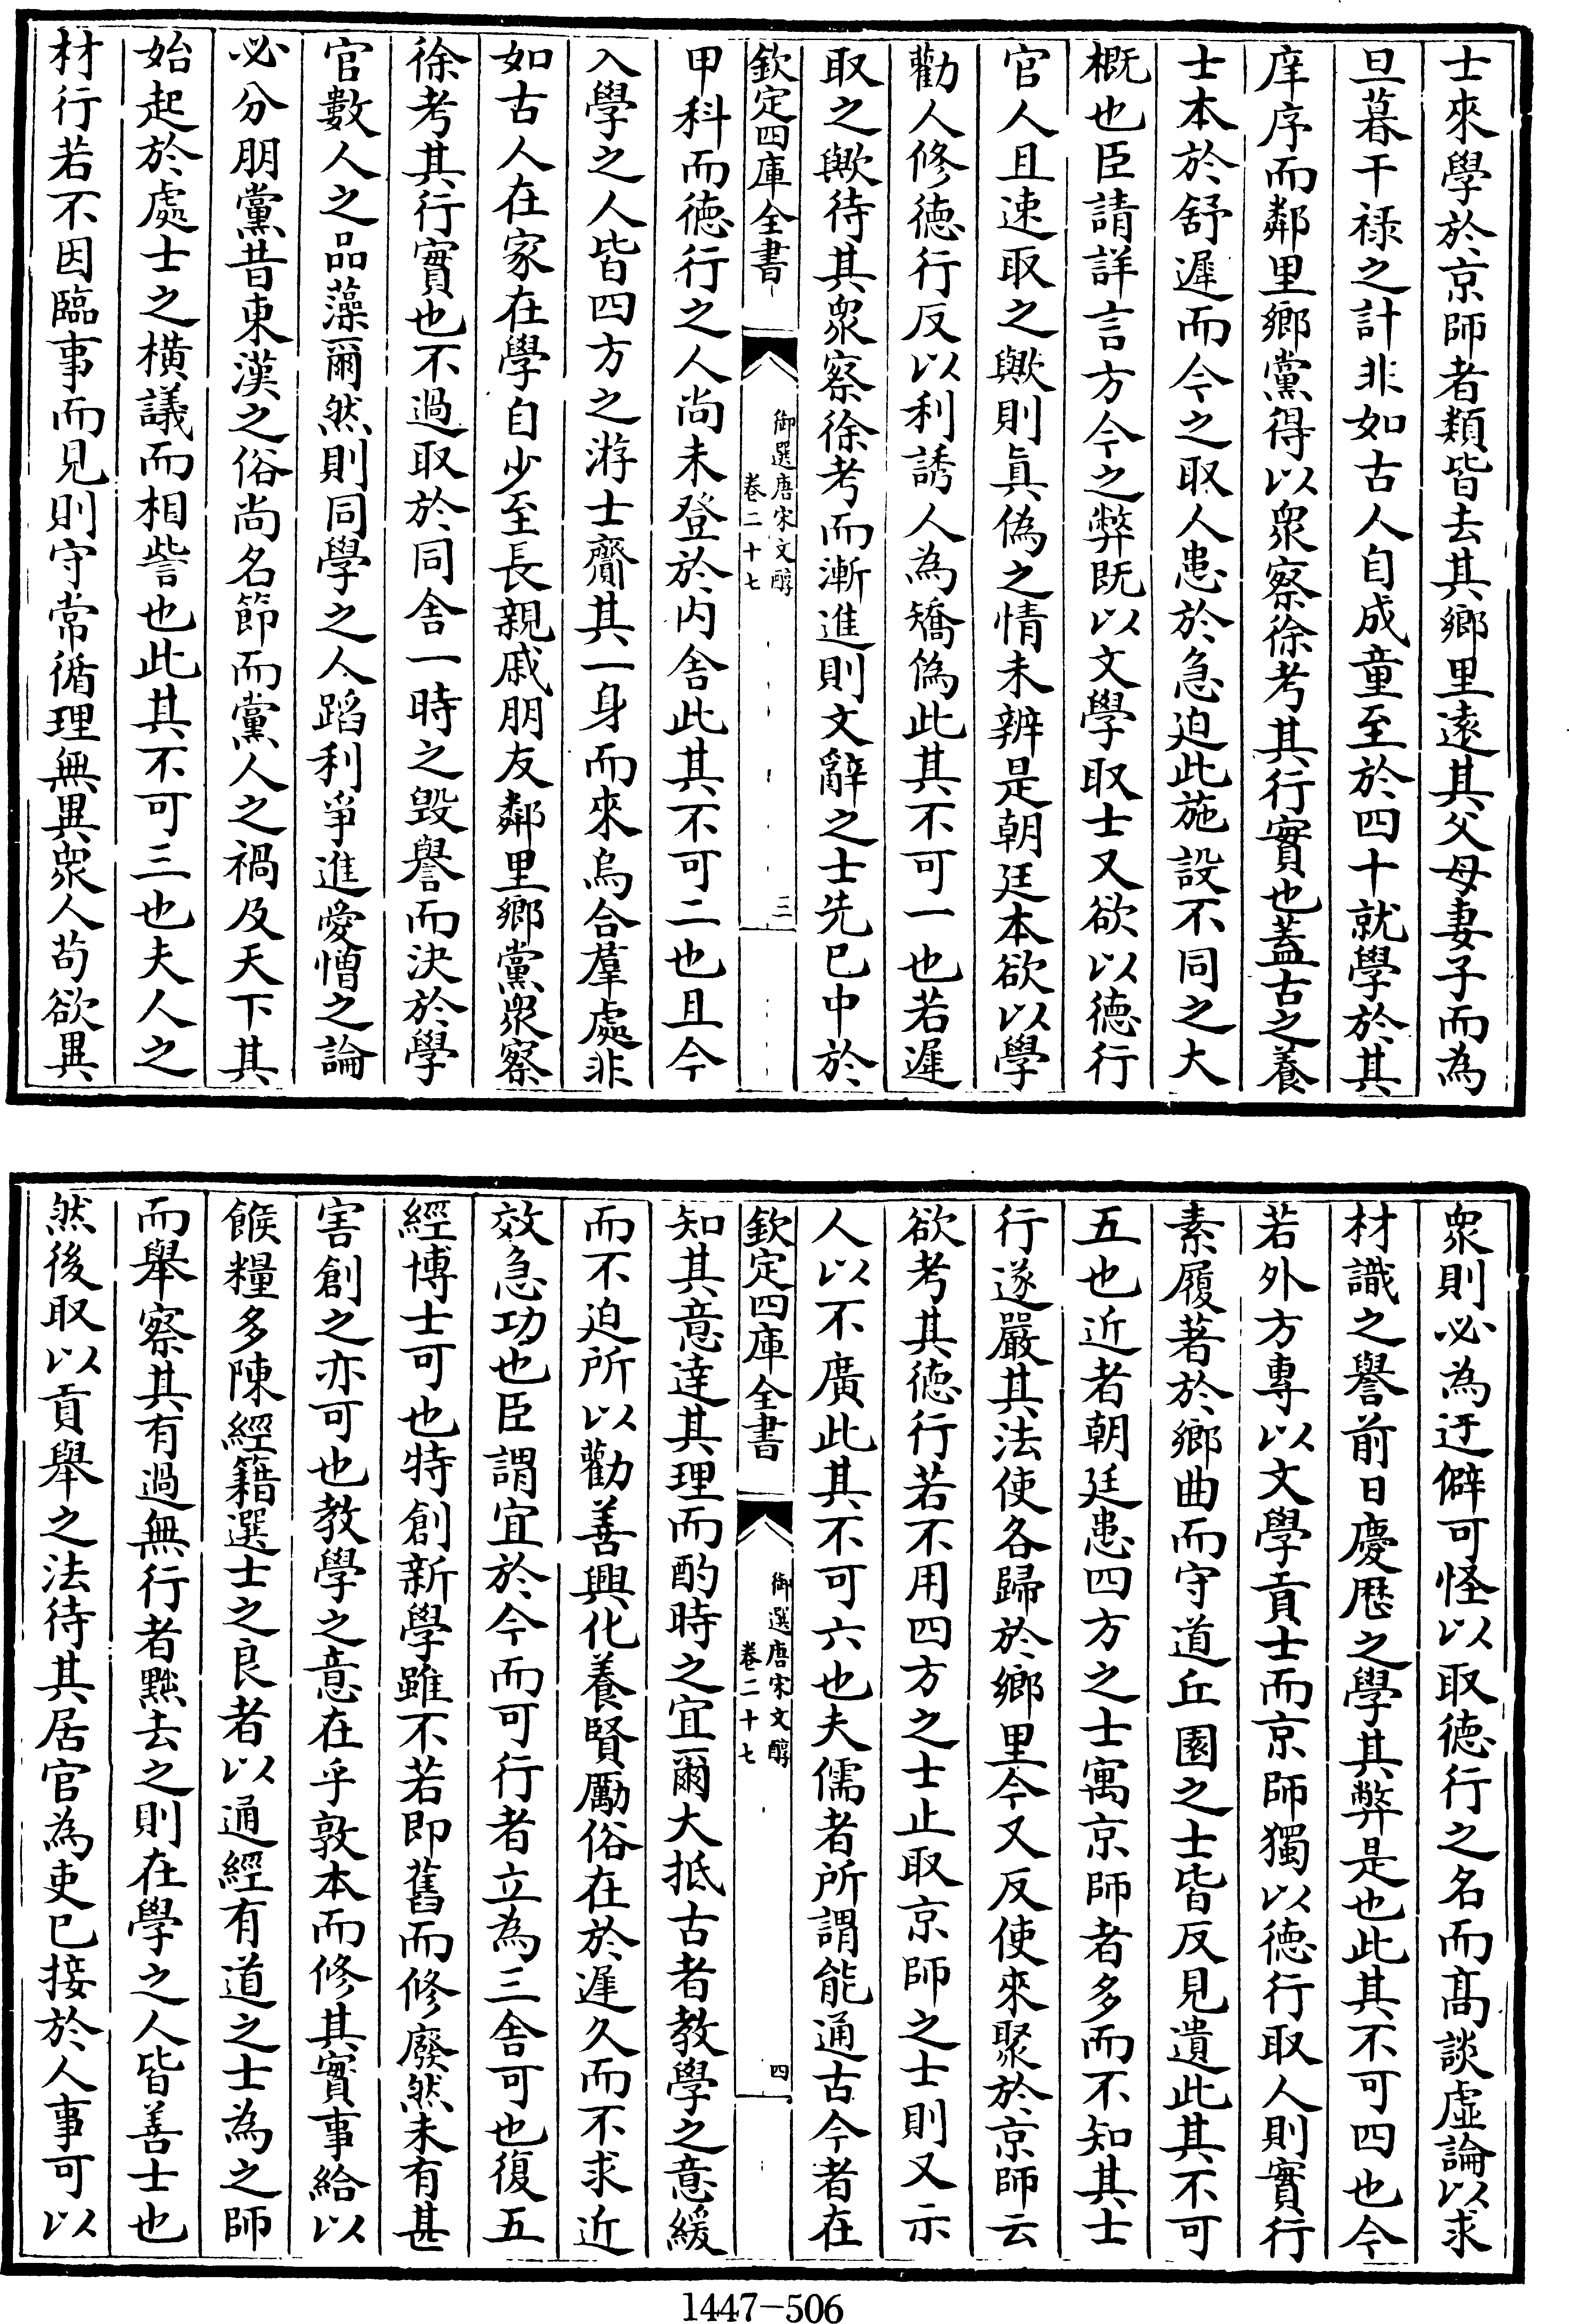 士來學於京師者類皆去其鄉里遠其父母妻子而為
旦暮干祿之計非如古人自成童至於四十就學於其
庠序而鄰里鄉黨得以衆察徐考其行實也蓋古之養
士本於舒遲而今之取人患於急迫此施設不同之大
概也臣請詳言方今之弊既以文學取士又欲以德行
官人且速取之歟則真偽之情未辨是朝廷本欲以學
勸人修德行反以利誘人為矯偽此其不可一也若遲
取之歟待其衆察徐考而漸進則文辭之士先已中於
欽定四庫全書
御選唐宋文醇
卷二十七
三
甲科而德行之人尚未登於內舍此其不可二也且今
入學之人皆四方之游士齎其一身而來烏合羣處非
如古人在家在學自少至長親戚朋友鄰里鄉黨衆察
徐考其行實也不過取於同舍一時之毀譽而決於學
官數人之品藻爾然則同學之人蹈利爭進愛憎之論
必分朋黨昔東漢之俗尚名節而黨人之禍及天下其
始起於處士之橫議而相訾也此其不可三也夫人之
材行若不因臨事而見則守常循理無異衆人苟欲異
衆則必為迂僻可怪以取德行之名而高談虛論以求
材識之譽前日慶歷之學其弊是也此其不可四也今
若外方專以文學貢士而京師獨以德行取人則實行
素履著於鄉曲而守道丘園之士皆反見遺此其不可
五也近者朝廷患四方之士寓京師者多而不知其士
行遂嚴其法使各歸於鄉里今又反使來聚於京師云
欲考其德行若不用四方之士止取京師之士則又示
人以不廣此其不可六也夫儒者所謂能通古今者在
欽定四庫全書
御選唐宋文醇
卷二十七
四
知其意達其理而酌時之宜爾大抵古者教學之意緩
而不迫所以勸善興化養賢勵俗在於遲久而不求近
效急功也臣謂宜於今而可行者立為三舍可也復五
經博士可也特創新學雖不若即舊而修廢然未有甚
害創之亦可也教學之意在乎敦本而修其實事給以
餱糧多陳經籍選士之良者以通經有道之士為之師
而舉察其有過無行者黜去之則在學之人皆善士也
然後取以貢舉之法待其居官為吏已接於人事可以
1447-506